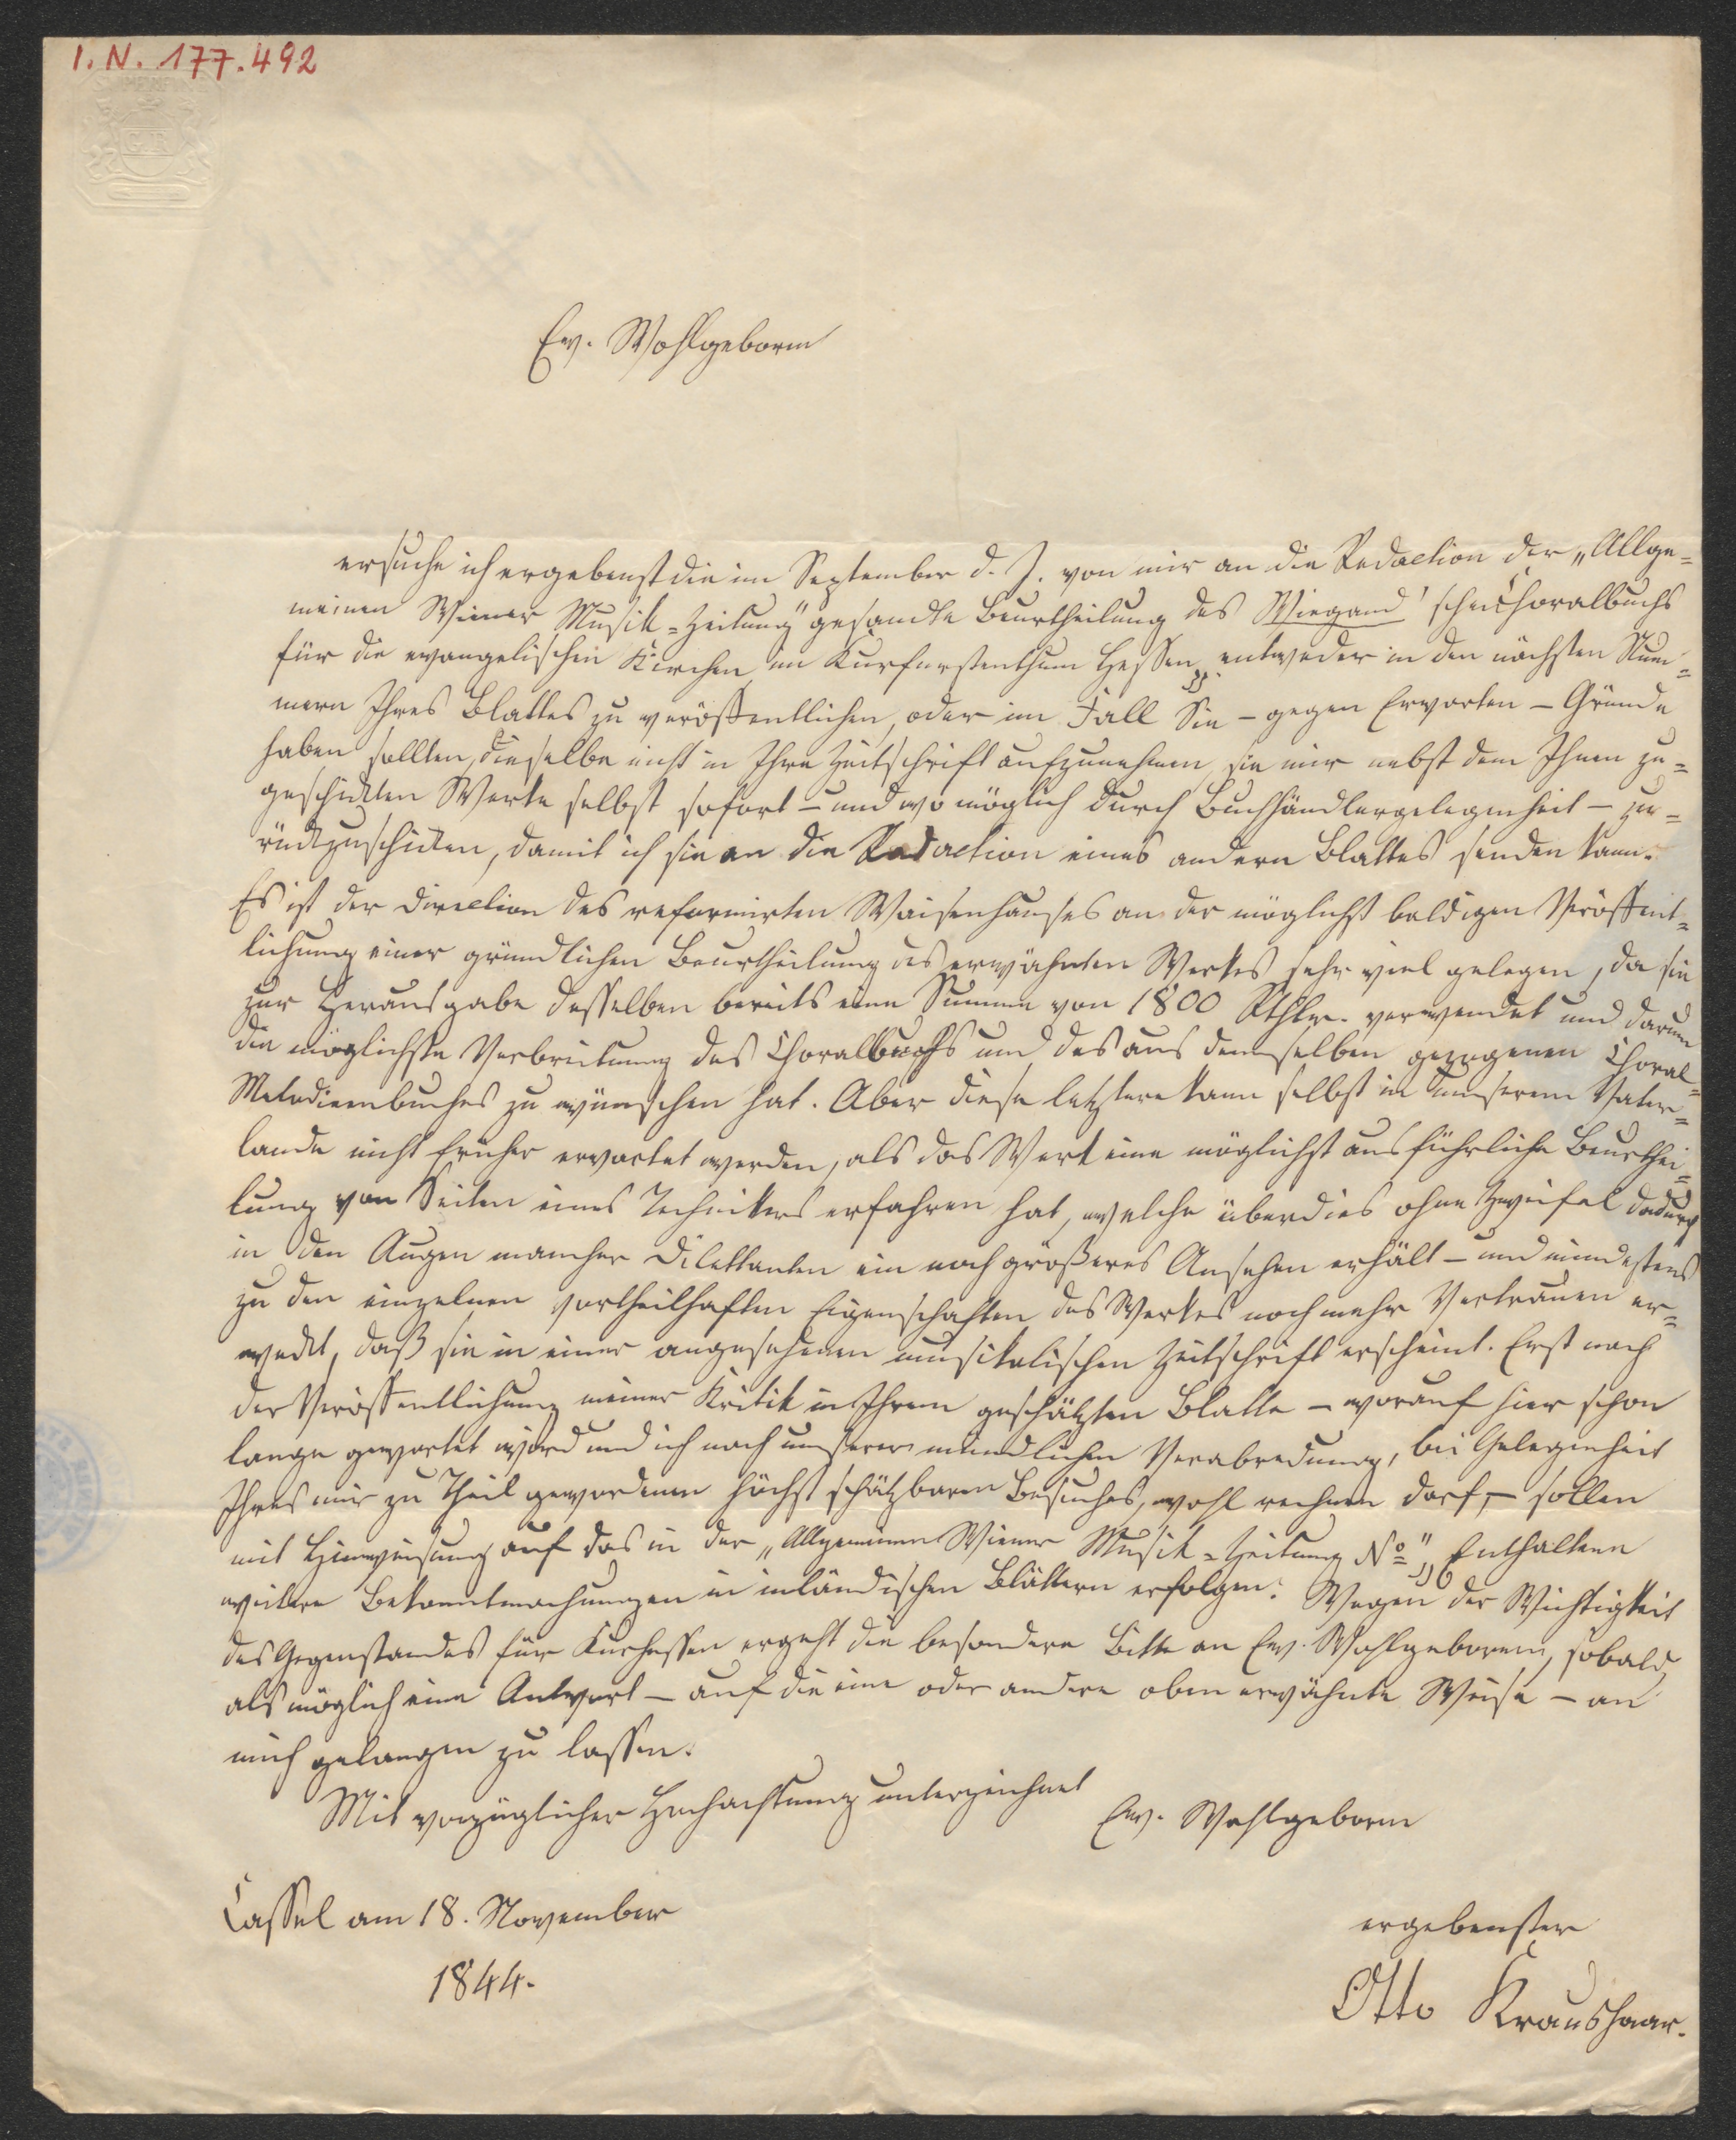 I. N. 177.492
Ew. Wohlgeborn
ersuche ich ergebenst die im September d. J. von mir an die Redaction der „Allge=
meinen Wiener Musik=Zeitung" gesandte Beurtheilung des Wiegand'schen Choralbuchs
für die evangelischen Kirchen im Kurfürstenthum Hessen entweder in den nächsten Num=
mern Ihres Blattes zu veröffentlichen, oder im Fall Sie – gegen Erwarten – Gründe
haben sollten, dieselbe nicht in Ihre Zeitschrift aufzunehmen, sie mir nebst dem Ihnen zu=
geschickten Werke selbst sofort – und wo möglich durch Buchhändlergelegenheit – zu=
rückzuschicken, damit ich sie an die Redaction eines andern Blattes senden kann.
Es ist der Direction des reformirten Waisenhauses an der möglichst baldigen Veröffent=
lichung einer gründlichen Beurtheilung des erwähnten Werkes sehr viel gelegen, da sie
zur Herausgabe desselben bereits eine Summe von 1800 Rthlr. verwendet und darum
die möglichste Verbreitung des Choralbuchs und des aus demselben gezogenen Choral=
Melodieenbuches zu wünschen hat. Aber diese letztere kann selbst in unserem Vater=
lande nicht früher erwartet werden, als das Werk eine möglichst ausführliche Beurthei=
lung von Seiten eines Technikers erfahren hat, welche überdies ohne Zweifel dadurch
in den Augen mancher Dilettanten ein noch größeres Ansehen erhält – und mindestens
zu den einzelnen vortheilhaften Eigenschaften des Werkes noch mehr Vertrauen er=
weckt, daß sie in einer angesehenen musikalischen Zeitschrift erscheint. Erst nach
der Veröffentlichung meiner Kritik in Ihrem geschätzten Blatte – worauf hier schon
lange gewartet wird und ich nach unserer mündlichen Verabredung, bei Gelegenheit
Ihres mir zu Theil gewordenen höchst schätzbaren Besuches, wohl rechnen darf, – sollen
mit Hinweisung auf das in der „Allgemeinen Wiener Musik=Zeitung No " Enthaltene
weitere Bekanntmachungen in inländischen Blättern erfolgen. Wegen der Wichtigkeit
des Gegenstandes für Kurhessen ergeht die besondere Bitte an Ew. Wohlgeboren, sobald
als möglich eine Antwort – auf die eine oder andere oben erwähnte Weise – an
mich gelangen zu lassen.
Mit vorzüglicher Hochachtung unterzeichnet
Ew. Wohlgeborn
Cassel am 18. November
1844.
ergebenster
Otto Kraushaar.